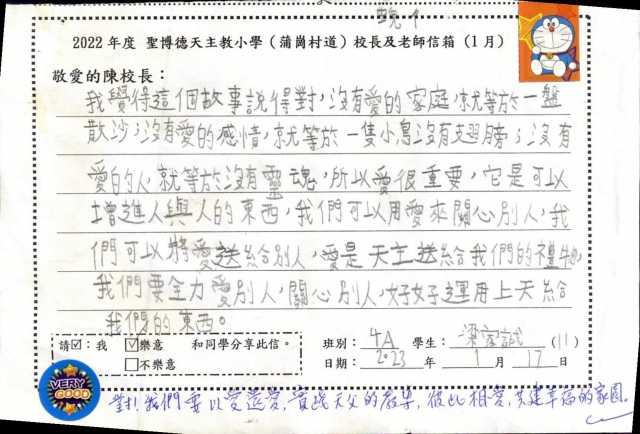 2022 年度 聖博德天主教小學（蒲崗村道）校長及老師信箱（1 月）
敬愛的陳校長：
我覺得這個故事說得對，沒有愛的家庭，就等於一盤
散沙；沒有愛的感情，就等於一隻小鳥沒有翅膀；沒有
愛的人，就等於沒有靈魂，所以愛很重要，它是可以
增進人與人的東西，我們可以用愛來關心別人，我
們可以將愛送給別人，愛是天主送給我們的禮物，
我們要全力愛別人，關心別人，好好運用上天給
我們的東西。
請☑：我 ☑樂意 和同學分享此信。 班別： 4A 學生： 梁家誠 (11)
□不樂意 日期： 2023 年 1 月 17 日
VERY GOOD
對！我們要以愛還愛，實踐天父的教導，彼此相愛，共建幸福的家園。